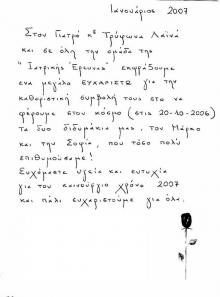 Ιανουάριος 2007
Στον Γιατρό κο Τρύφωνα Λαϊνά
και σε όλη την ομάδα της
"Ιατρικής Έρευνας" εκφράζουμε
ένα μεγάλο ΕΥΧΑΡΙΣΤΩ για την
καθοριστική συμβολή τους στο να
φέρουμε στον κόσμο (στις 20-10-2006)
Τα δυο διδυμάκια μας, τον Μάρκο
και την Σοφία, που τόσο πολύ
επιθυμούσαμε!
Ευχόμαστε υγεία και ευτυχία
για τον καινούργιο χρόνο 2007
και πάλι ευχαριστούμε για όλα.